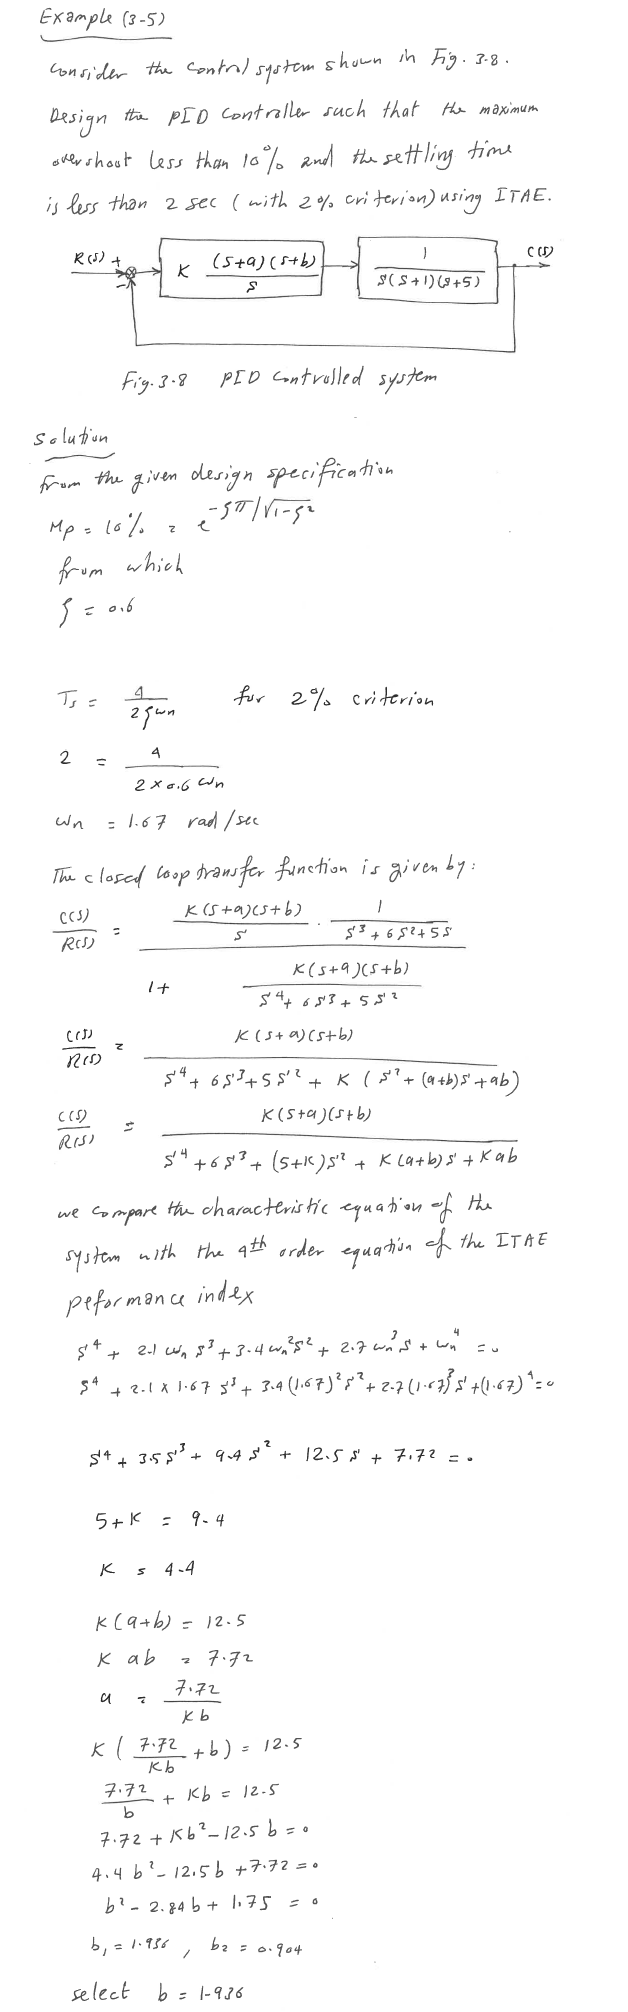 Example (3-5)
Consider the control system shown in Fig. 3-8.
Design the PID controller such that the maximum
overshoot less than 10% and the settling time
is less than 2 sec (with 2% criterion) using ITAE.
R(s) + - K (s+a)(s+b) / s 1 / s(s+1)(s+5) C(s)
Fig. 3-8 PID controlled system
Solution
from the given design specification
Mp = 10% = e^-ζπ/√1-ζ²
from which
ζ = 0.6
Ts = 4 / 2ζωn for 2% criterion
2 = 4 / 2×0.6 ωn
ωn = 1.67 rad/sec
The closed loop transfer function is given by:
C(s)/R(s) = K(s+a)(s+b)/s · 1/s³+6s²+5s
1+ K(s+a)(s+b) / s⁴+6s³+5s²
C(s)/R(s) = K(s+a)(s+b) / s⁴+6s³+5s²+K(s²+(a+b)s+ab)
C(s)/R(s) = K(s+a)(s+b) / s⁴+6s³+(5+K)s²+K(a+b)s+Kab
we compare the characteristic equation of the
system with the 4th order equation of the ITAE
peformance index
s⁴ + 2.1 ωn s³ + 3.4 ωn² s² + 2.7 ωn³ s + ωn⁴ = 0
s⁴ + 2.1 x 1.67 s³ + 3.4 (1.67)² s² + 2.7 (1.67)³ s + (1.67)⁴ = 0
s⁴ + 3.5 s³ + 9.4 s² + 12.5 s + 7.72 = 0
5+K = 9.4
K = 4.4
K(a+b) = 12.5
K ab = 7.72
a = 7.72 / Kb
K ( 7.72/Kb + b) = 12.5
7.72/b + Kb = 12.5
7.72 + Kb² - 12.5 b = 0
4.4 b² - 12.5 b + 7.72 = 0
b² - 2.84 b + 1.75 = 0
b₁ = 1.936 , b₂ = 0.904
select b = 1.936